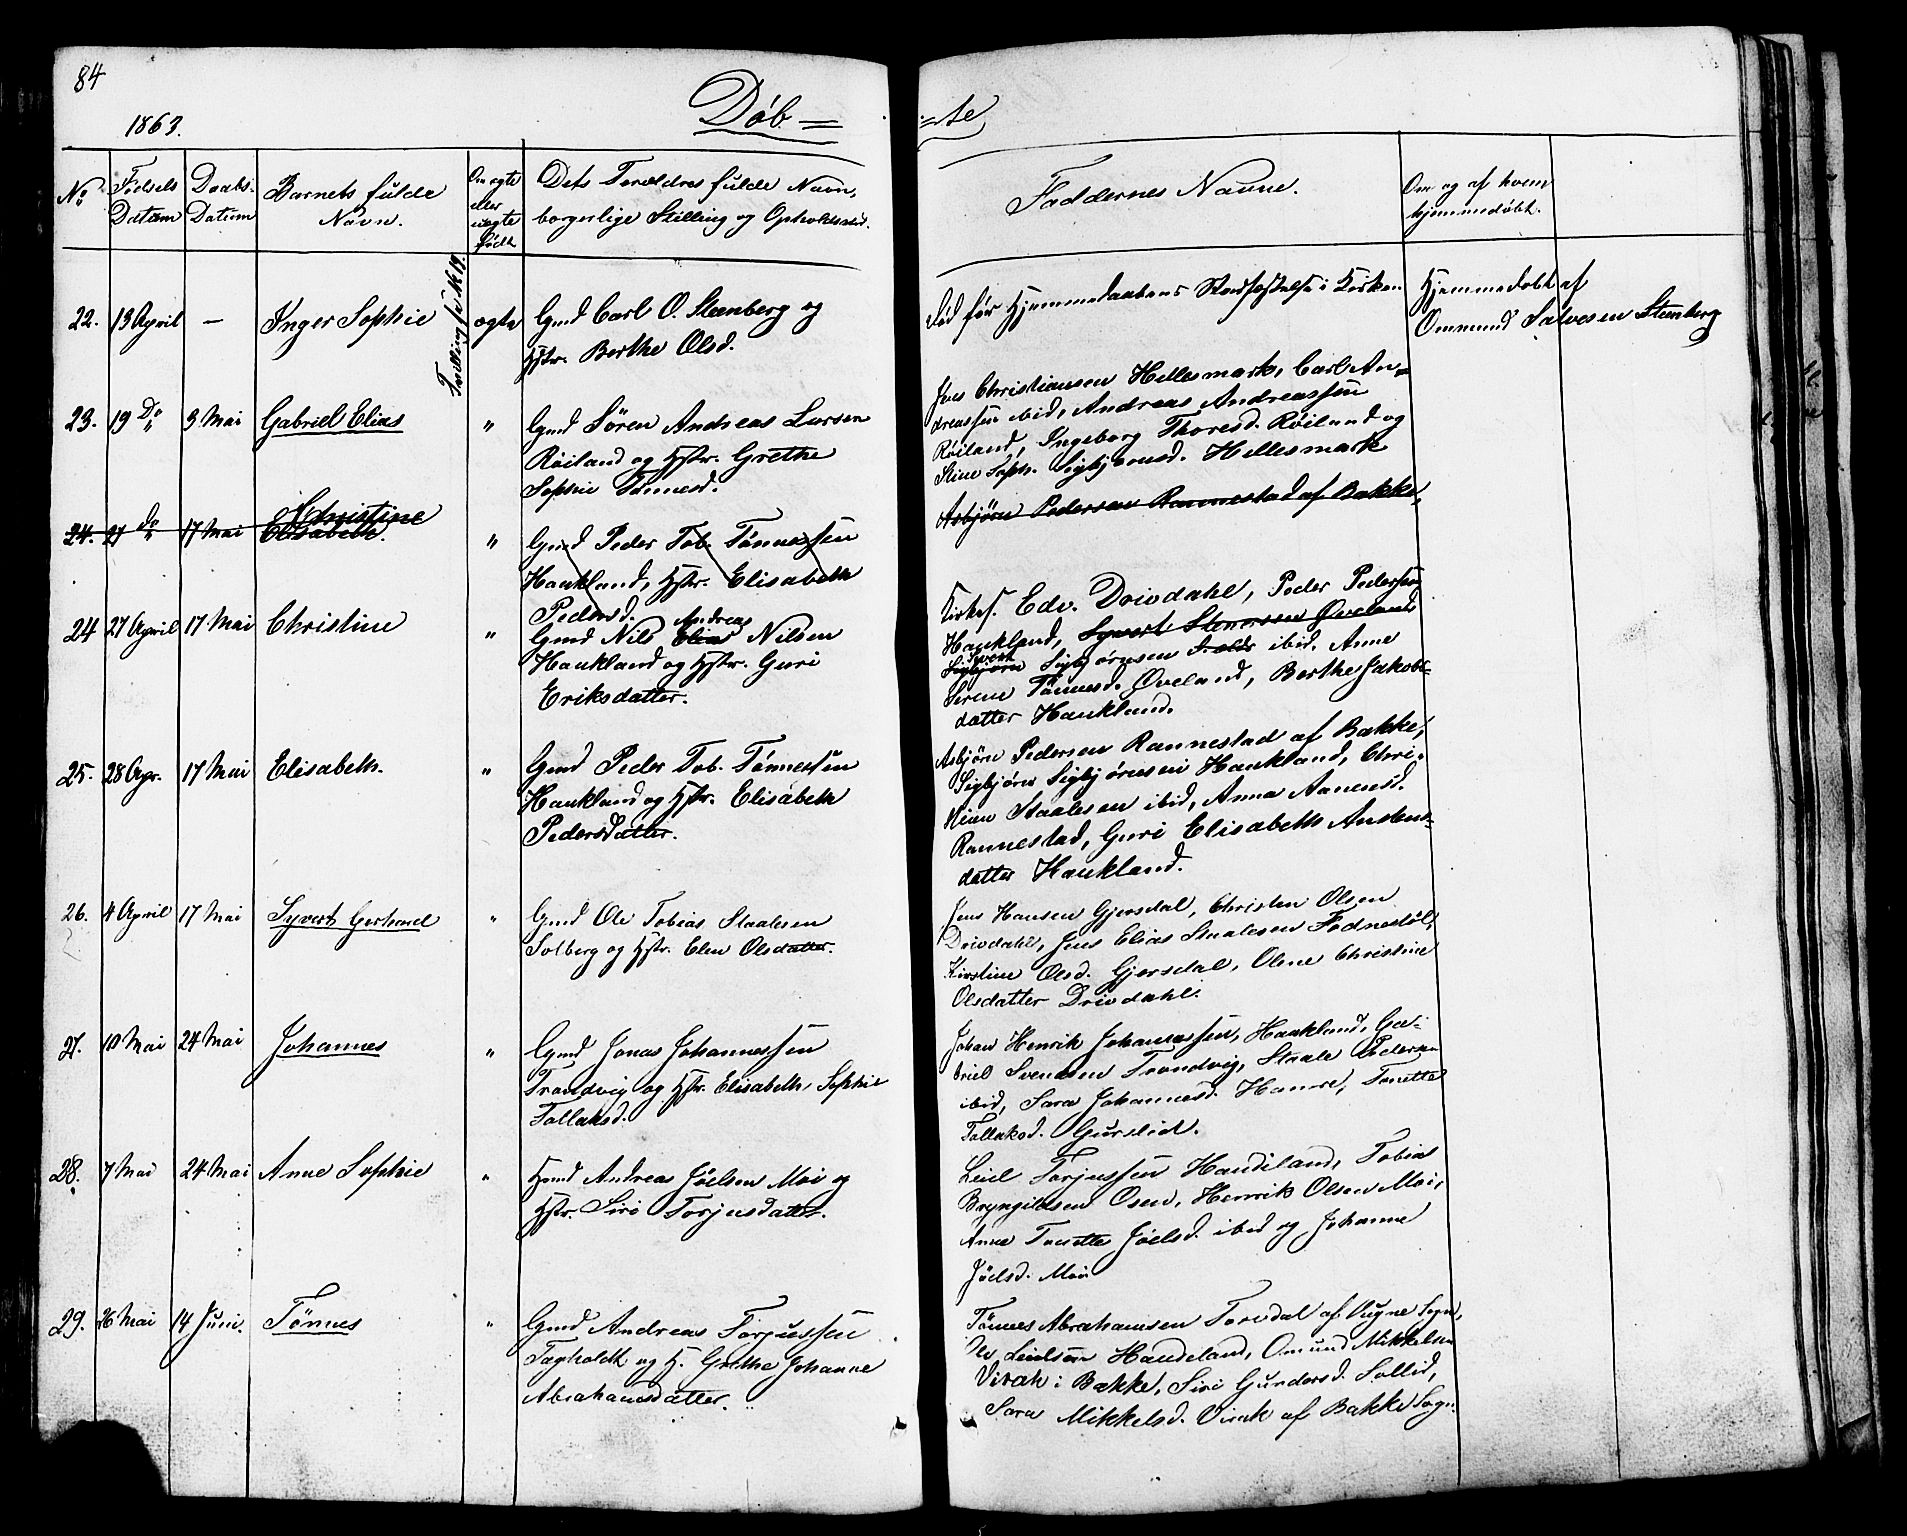 84
1863.
Døb=
=te
No
Fødsels Datum
Daabs- Datum
Barnets fulde Navn.
Om ægte eller uægte født
Dets Forældres fulde Navn, borgerlige Stilling og Opholdssted.
Faddernes Navne.
Om og af hvem hjemmedøbt.
22. 13 April — Inger Sophie
Tvilling se No 19.
ægte
Gmd Carl O. Steenberg og
Hstr. Berthe Olsd.
Død før Hjemmedaabens Stadfæstelse i Kirken
Hjemmedøbt af
Ommund Salvesen Steenberg
23. 19 Do 3 Mai Gabriel Elias "
Gmd Søren Andreas Larsen
Røiland og Hstr. Grethe
Sophie Tønnesd.
Jens Christiansen Hellesmark, Carl An-
dreassen ibid, Andreas Andreassen
Røiland, Ingeborg Thoresd. Røiland og
Stine Soph. Sigbjørnsd. Hellesmark
24. 27 do 17 Mai Christine
Elisabeth. "
Gmd Peder Tob. Tønnessen
Haukland, Hstr. Elisabeth
Pedersd.
Asbjørn Pedersen Rannestad af Bakke,
24 27 April 17 Mai Christine "
Andreas
Gmd Nils Elias Nilsen
Haukland og Hstr. Guri
Eriksdatter.
Kirkes. Edv. Drivdahl, Peder Pedersen
Haukland, Syvert Stenersen Øveland
Syvert
Sigbjørn Sigbjørnsen ibid. Anne
Serine Tønnesd. Øveland, Berthe Jakobs-
datter Haukland.
25. 28 Apr. 17 Mai Elisabeth. "
Gmd Peder Tob. Tønnessen
Haukland og Hstr. Elisabeth
Pedersdatter.
Asbjørn Pedersen Rannestad af Bakke,
Sigbjørn Sigbjørnsen Haukland, Chri-
stien Staalesen ibid, Anna Aanensd.
Rannestad, Guri Elisabeth Anstens-
datter Haukland.
26. 4 April 17 Mai Syvert Gerhard "
Gmd Ole Tobias Staalesen
Solberg og Hstr. Elen Olsdatter.
Jens Hansen Gjersdal, Christen Olsen
Drivdahl, Jens Elias Staalesen Fodnestøl,
Kirstine Olsd. Gjersdal, Oline Christine
Olsdatter Drivdahl.
27. 10 Mai 24 Mai Johannes "
Gmd Jonas Johannessen
Trandvig og Hstr. Elisabeth Sophie
Tollaksd.
Johan Henrik Johannessen, Haukland, Ga-
briel Svendsen Trandvig, Staale Pedersen
ibid, Sara Johannesd. Hamre, Tonette
Tollaksd. Gurslid.
28. 7 Mai 24 Mai Anne Sophie "
Hmd Andreas Jöelsen Moi og
Hstr. Siri Torjusdatter.
Leul Torjussen Haudeland, Tobias
Bryngildsen Osen, Henrik Olsen Moi,
Anne Tonette Jöelsd. ibid og Johanne
Jöelsd. Moi
29. 26 Mai 14 Juni. Tønnes "
Gmd Andreas Torjussen
Tagholdt og H. Grethe Johanne
Abrahamsdatter.
Tønnes Abrahamsen Torsdal af Qvigne Sogn,
Ole Leulsen Haudeland, Omund Mikkelsen
Virak i Bakke, Siri Gundersd. Sollid,
Sara Mikkelsd. Virak af Bakke Sogn.